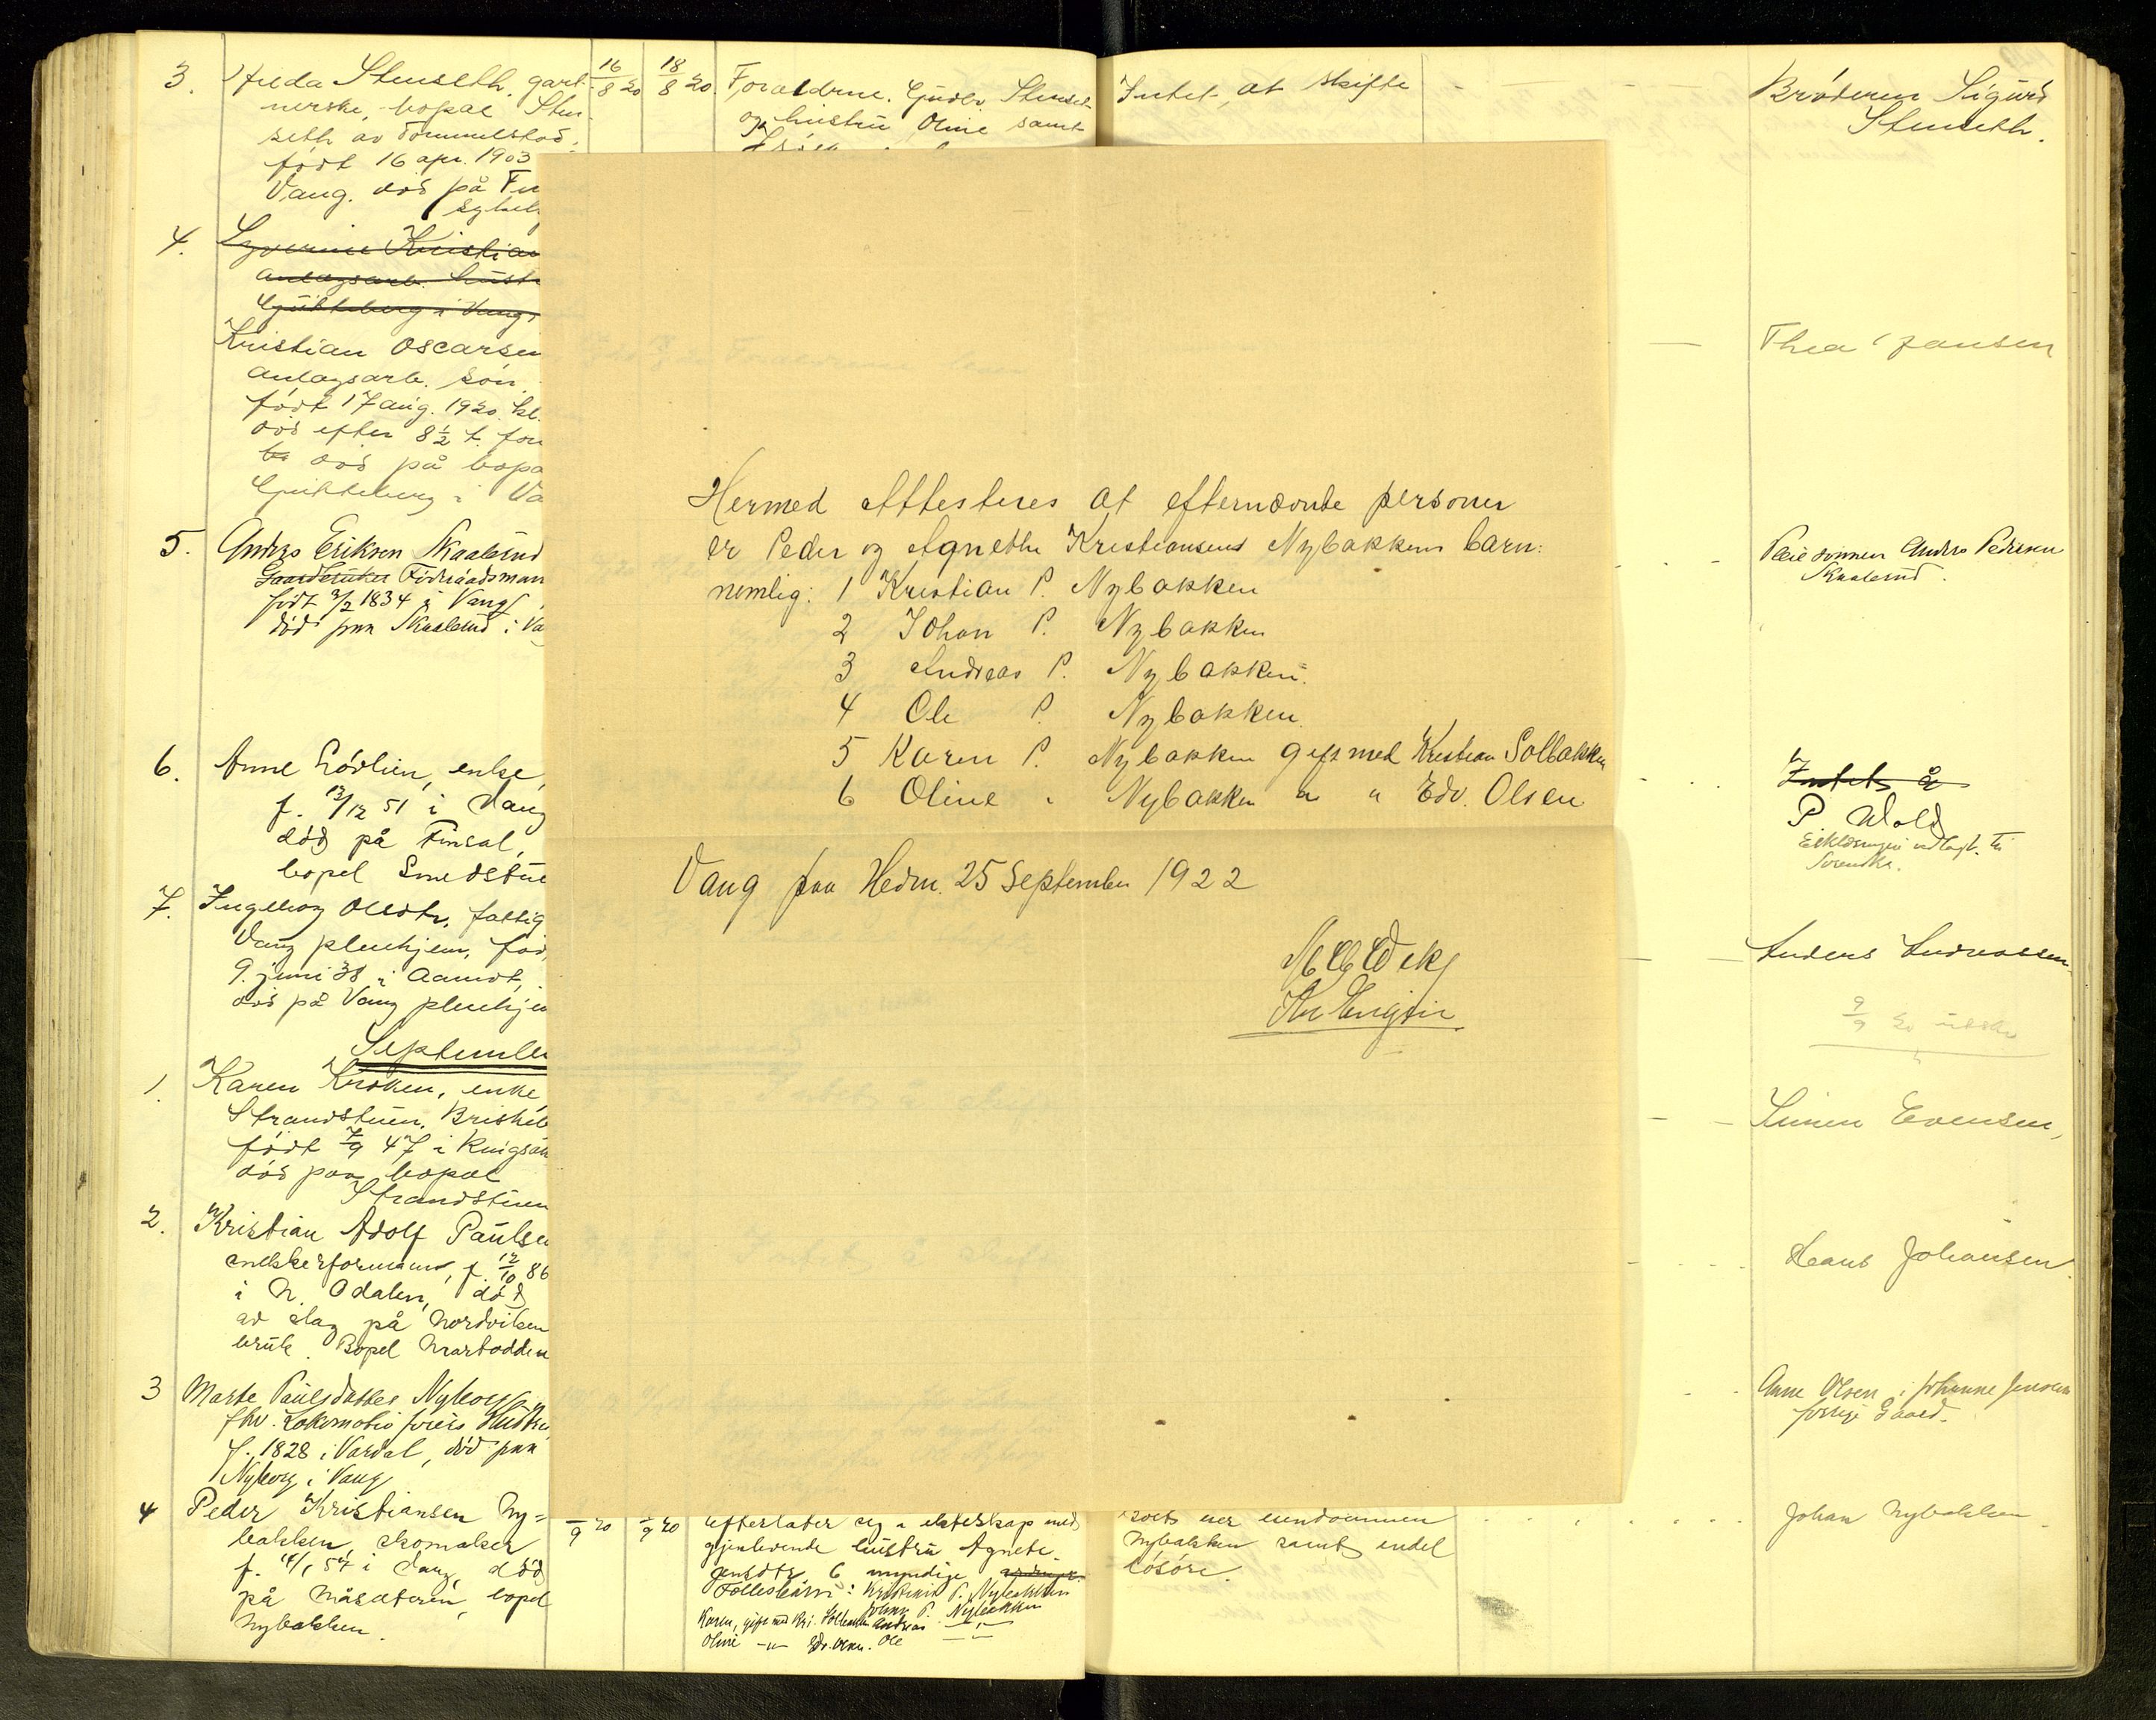 3. Stenseth, gart-
nerske, bopæl Sten-
seth av Tommelstad,
født 16 apr. 1903
Vang. død på Fu
sykeh
16/8 20
18/8 20.
Forældrene. Gudbr. Stenset
og hustru Oline samt
Intet at skifte
Brøderen Sigurd
Stenseth.
4. Kristian
anlægsarb. hustr
i Vang,
Kristian Oscarsen
anlægsarb. søn
født 17 aug. 1920. kl.
død efter 8½ t. for
død på bopæ
i Va
Thea Jansen
5. Anders Eriksen Skaalrud
Gaardbruker Föderaadsman
født 3/2 1834 i Vang
död paa Skaalrud i Va
Pleiesönnen Anders Pedersen
Skaalrud.
6. Anne Lövlien, enke,
f. 13/12 51 i Vang
död på Finsal,
bopel Smedstue
Intet å
P Wold
vedlagt. Til
7. Ingeborg Olsdtr. fattig
Vang pleiehjem, fød
9. juni 38 i Aamot,
død på Vang pleiehje
Anders Andreassen
9/9 20
September
1. Karen Kroken, enke,
Strandstuen, Briskeb
født 7/9 47 i Ringsa
död paa bopæl
Strandstuen
Simen Evensen,
2. Kristian Adolf Paulse
snekkerformann, f. 12/10 86
i N. Odalen, död
av slag på Nordviken
bruk. Bopel Martodden
Hans Johansen.
3 Marte Paulsdatter Nyborg
fhv. Lokomotivförers Hustru
f. 1828 i Vardal, död paa
Nyborg i Vang
Anne Olsen i Johanne Jensens
forrige Gaard.
4 Peder Kristiansen Ny=
bakken, skomaker
f. 57 i Vang, död
på Måsæteren, bopel
Nybakken.
9 20
9 20
efterlater sig i ekteskap med
gjenlevende hustru Agnete
Jensdtr 6 myndige
Fællesbarn: Kristian P. Nybakken
Johan P. Nybakken
Karen, gift med Kri. Solbakken Andreas —"—
Oline —"— Edv. Olsen. Ole —"—
eiendommen
Nybakken samt endel
lösöre.
Johan Nybakken
Hermed attesteres at efternævnte personer
er Peder og Agnethe Kristiansens Nybakkens barn:
nemlig: 1 Kristian P. Nybakken
2 Johan P. Nybakken
3 Andreas P. Nybakken.
4 Ole P. Nybakken.
5 Karen P. Nybakken gift med Kristian Solbakken
6 Oline " Nybakken " " Edv. Olsen
Vang paa Hedm. 25 September 1922